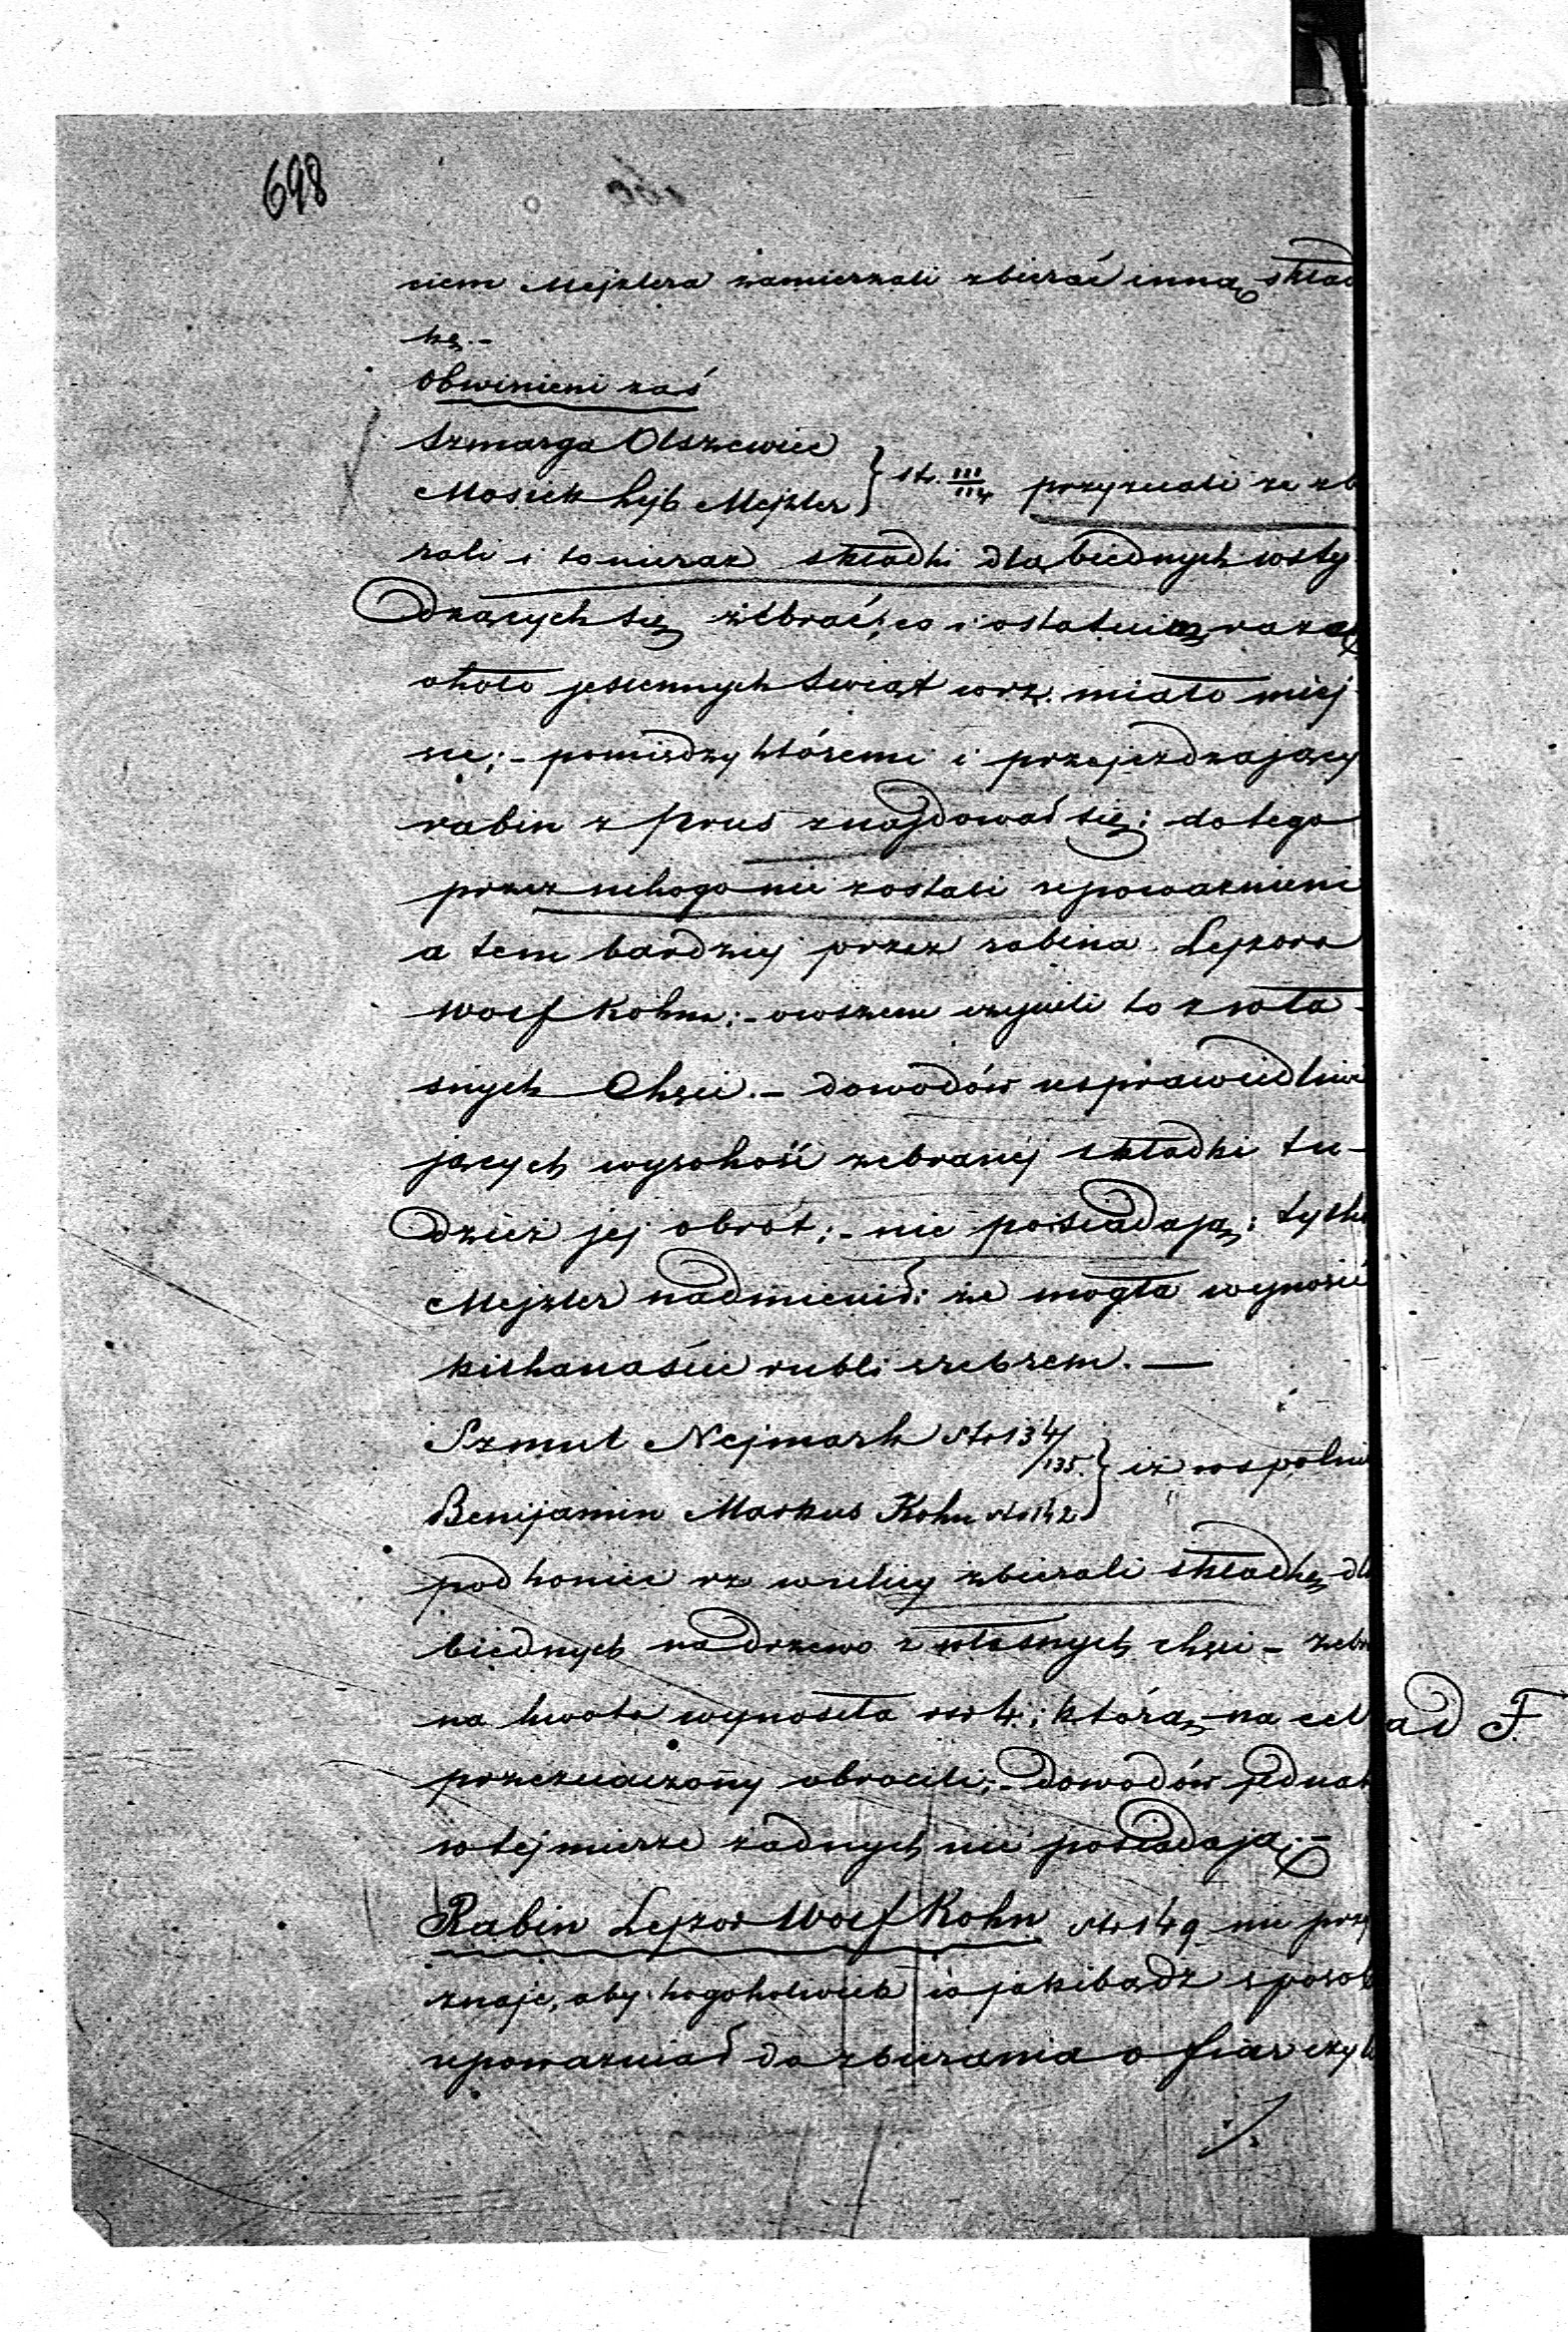 698
ciem Mejzlera zamierzali zbierać inną skład
kę.-
Obwinieni zaś
Szmarga Olszewicz
Mosiek Lejb Mejzler } str. 111/114 przyznali że zb
rali i to nieraz składki dla biednych wsty
dzących się żebrać; co i ostatnim razem
około jesiennych Swiąt w r.z. miało miej
sce;- pomiędzy któremi i przejeżdzający
rabin z Prus znajdował się; do tego
przez nikogo nie zostali upoważnieni
a tem bardziej przez rabina Lejzora
Wolf Kohna;- owszem czynili to z wła-
snych Chęci.- dowodów usprawiedliwi
jących wysokość zebranéj składki tu-
dzież jej obrot;- nie posiadają; tylko
Mejzler nadmienił: że mogła wynosić
kilkanaście rubli srebrem.-
Szmul Nejmark str 134/135.
Benijamin Markus Kohn str 142 } iż wspolnie
pod koniec r.z. w ulicy zbierali składkę dla
biednych na drzewo z własnych chęci - zebra
na kwota wynosiła rsr 4.; którą na cel
ad F.
przeznaczony obrocili;- dowodów jednak
w tej mierze żadnych nie posiadają.-
Rabin Lejzor Wolf Kohn str 149 nie przy
znaje, aby kogokolwiek w jakibądz sposob
upoważniał do zbierania ofiar czyli
./.